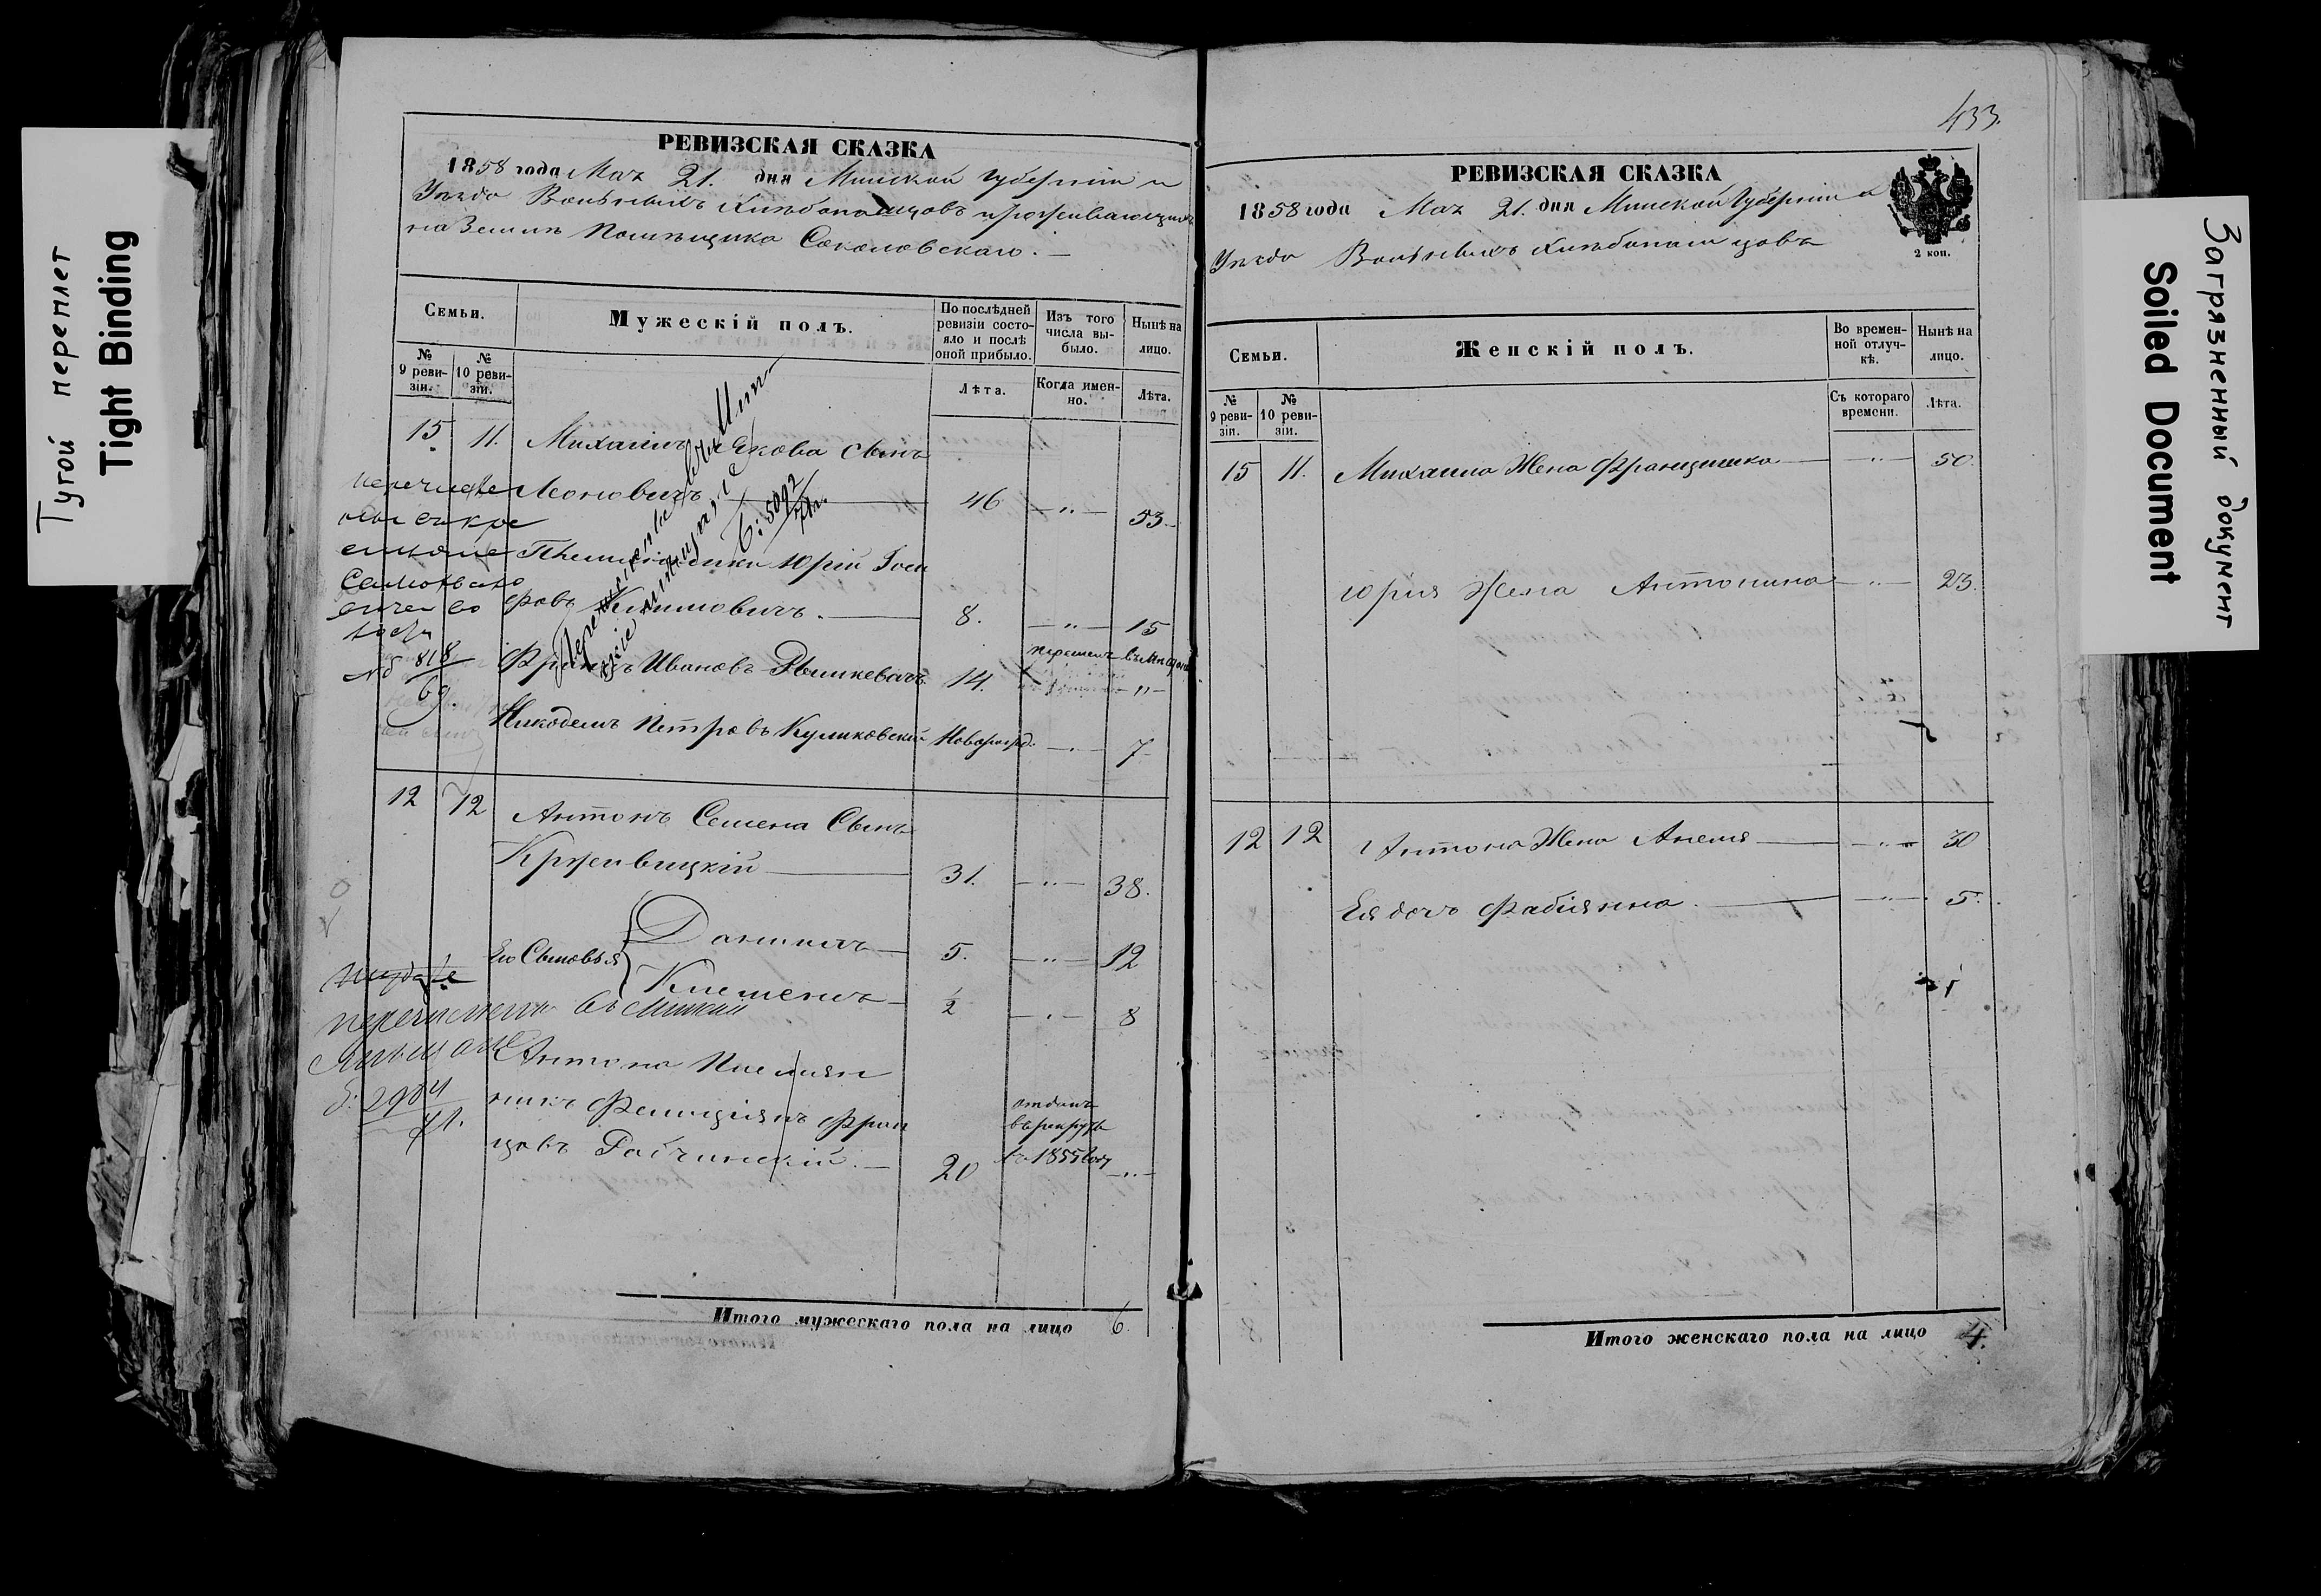 Тугой переплет
Tight Binding
РЕВИЗСКАЯ СКАЗКА
1858 года Мая 21. дня Минской Губерніи и
Уѣзда Вольныхъ Хлѣбопашцовъ проживающихъ
на Землѣ Помѣщика Соколовскаго.
Семьи.
Мужескій полъ.
По послѣдней ревизіи состояло и послѣ оной прибыло.
Изъ того числа выбыло.
Нынѣ на лицо.
№ 9 ревизіи.
№ 10 ревизіи.
Лѣта.
Когда именно.
Лѣта.
15 11. Михаилъ Якова Сынъ
Леоновичъ 46 — " — 53.
Юрій Іоси
фовъ Климовичъ. 8. — " — 15
818
69.
Францъ Ивановъ Рымкевичъ 14. — " —
Никодемъ Петровъ Куликовскій Новорожд. — " — 7
6: 5092
12 12 Антонъ Семена Сынъ
Кржевицкій 31. — " — 38.
Его Сыновья
Данилъ 5. — " — 12
Клеменъ ½ — " — 8
перечислены въ Минскіи
2904
71.
Антона Племян
никъ Фелиціянъ Фран
цовъ Рабчинскій. 20
отданъ
въ рекруты
въ 1855 году — " —
Итого мужескаго пола на лицо 6.
433.
РЕВИЗСКАЯ СКАЗКА
1858 года Мая 21. дня Минской Губерніи и
Уѣзда Вольныхъ Хлѣбопашцовъ
2 коп.
Семьи.
Женскій полъ.
Во временной отлучкѣ.
Нынѣ на лицо.
№ 9 ревизіи.
№ 10 ревизіи.
Съ котораго времени.
Лѣта.
15 11. Михаила Жена Францишка — " — 50.
Юрія Жена Антонина — " — 23.
12 12 Антона Жена Анеля — " — 30
Ея дочь Фабіянна — " — 5.
Итого женскаго пола на лицо 4.
Загрязненный документ
Soiled Document